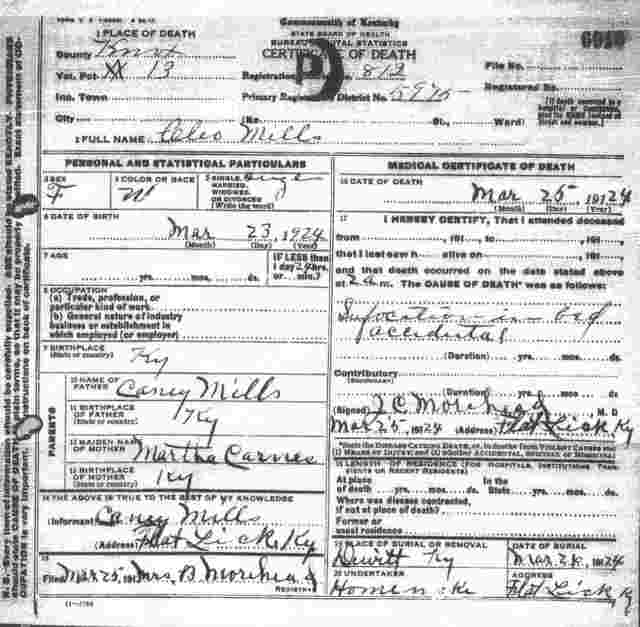 Commonwealth of Kentucky
STATE BOARD OF HEALTH
BUREAU VITAL STATISTICS
CERTIFICATE OF DEATH
1 PLACE OF DEATH
County Knox
Vot. Pct. 13
Registration 812
File No.
Inc. Town
Primary Registration District No. 5975
Registered No.
City (No. St., Ward)
2 FULL NAME Cleo Mills
PERSONAL AND STATISTICAL PARTICULARS
3 SEX F
4 COLOR OR RACE W
5 SINGLE, MARRIED, WIDOWED, OR DIVORCED (Write the word) Single
6 DATE OF BIRTH
Mar 23, 1924
(Month) (Day) (Year)
7 AGE
yrs. mos. ds.
IF LESS than 1 day 24 hrs. or min.?
8 OCCUPATION
(a) Trade, profession, or particular kind of work
(b) General nature of industry business or establishment in which employed (or employer)
9 BIRTHPLACE
(State or country) Ky
PARENTS
10 NAME OF FATHER Caney Mills
11 BIRTHPLACE OF FATHER (State or country) Ky
12 MAIDEN NAME OF MOTHER Martha Carnes
13 BIRTHPLACE OF MOTHER (State or country) Ky
14 THE ABOVE IS TRUE TO THE BEST OF MY KNOWLEDGE
Informant Caney Mills
(Address) Flat Lick, Ky
15
Filed Mar 25, 191 Mrs. B Morehead
REGISTRAR
MEDICAL CERTIFICATE OF DEATH
16 DATE OF DEATH
Mar 25 1924
(Month) (Day) (Year)
17 I HEREBY CERTIFY, That I attended deceased
from , 191 , to , 191 ,
that I last saw h alive on , 191 ,
and that death occurred on the date stated above
at 2 a m. The CAUSE OF DEATH* was as follows:
Sufocation in bed
accidental
(Duration) yrs. mos. ds.
Contributory
(SECONDARY)
(Duration) yrs. mos. ds.
(Signed) J.C. Morehead M. D
Mar 25, 1924 (Address) Flat Lick Ky
*State the DISEASE CAUSING DEATH, or, in deaths from VIOLENT CAUSES state (1) MEANS OF INJURY; and (2) whether ACCIDENTAL, SUICIDAL or HOMICIDAL
18 LENGTH OF RESIDENCE (FOR HOSPITALS, INSTITUTIONS, TRANSIENTS OR RECENT RESIDENTS)
At place of death yrs. mos. ds. In the State yrs. mos. ds.
Where was disease contracted, if not at place of death?
Former or usual residence
19 PLACE OF BURIAL OR REMOVAL
Dewitt Ky
DATE OF BURIAL
1924
20 UNDERTAKER
ADDRESS
Flat Lick Ky
11-3784